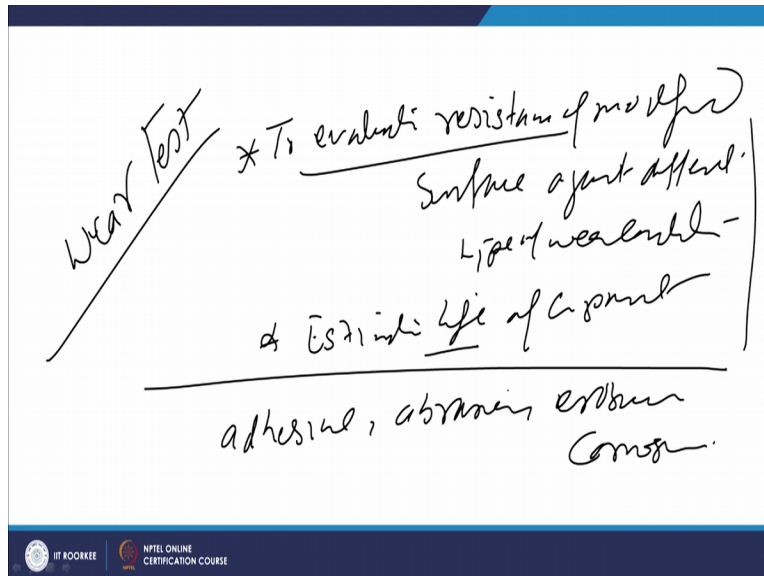 Wear Test
* To evaluate resistance of modified
Surface against different
type of wear condition
* Estimate life of component
adhesive, abrasive, erosion
Corrosion
IIT ROORKEE
NPTEL
NPTEL ONLINE
CERTIFICATION COURSE